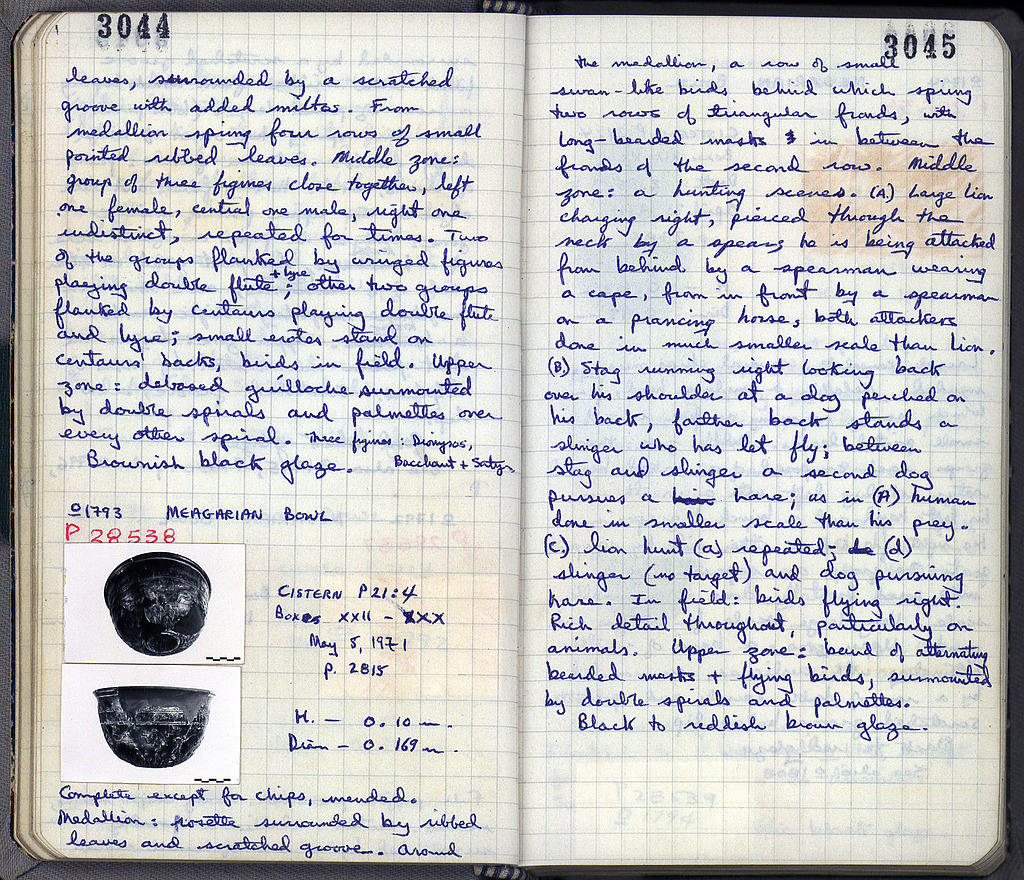 3044
leaves, surrounded by a scratched
groove with added miltos. From
medallion spring four rows of small
pointed ribbed leaves. Middle zone:
group of three figures close together, left
one female, central one male, right one
indistinct, repeated for times. Two
of the groups flanked by winged figures
playing double flute + lyre; other two groups
flanked by centaurs playing double flute
and lyre; small erotes stand on
centaurs' backs, birds in field. Upper
zone: debased guilloche surmounted
by double spirals and palmettes over
every other spiral. Three figures: Dionysos,
Bacchant + Satyr.
Brownish black glaze.
O 1793 MEAGARIAN BOWL
P 28538
CISTERN P 21:4
Boxes XXII - XXX
May 5, 1971
p. 2815
H. - 0.10 m.
Diam - 0.169 m.
Complete except for chips, mended.
Medallion: rosette surrounded by ribbed
leaves and scratched groove. Around
3045
the medallion, a row of small
swan-like birds behind which spring
two rows of triangular fronds, with
long-bearded masks in between the
fronds of the second row. Middle
zone: a hunting scenes. (A.) Large lion
charging right, pierced through the
neck by a spear; he is being attacked
from behind by a spearman wearing
a cape, from in front by a spearman
on a prancing horse, both attackers
done in much smaller scale than lion.
(B.) Stag running right looking back
over his shoulder at a dog perched on
his back, farther back stands a
slinger who has let fly; between
stag and slinger a second dog
pursues a hare; as in (A) human
done in smaller scale than his prey.
(C.) lion hunt (a) repeated; (d)
slinger (no target) and dog pursuing
hare. In field: birds flying right.
Rich detail throughout, particularly on
animals. Upper zone: band of alternating
bearded masks + flying birds, surmounted
by double spirals and palmettes.
Black to reddish brown glaze.